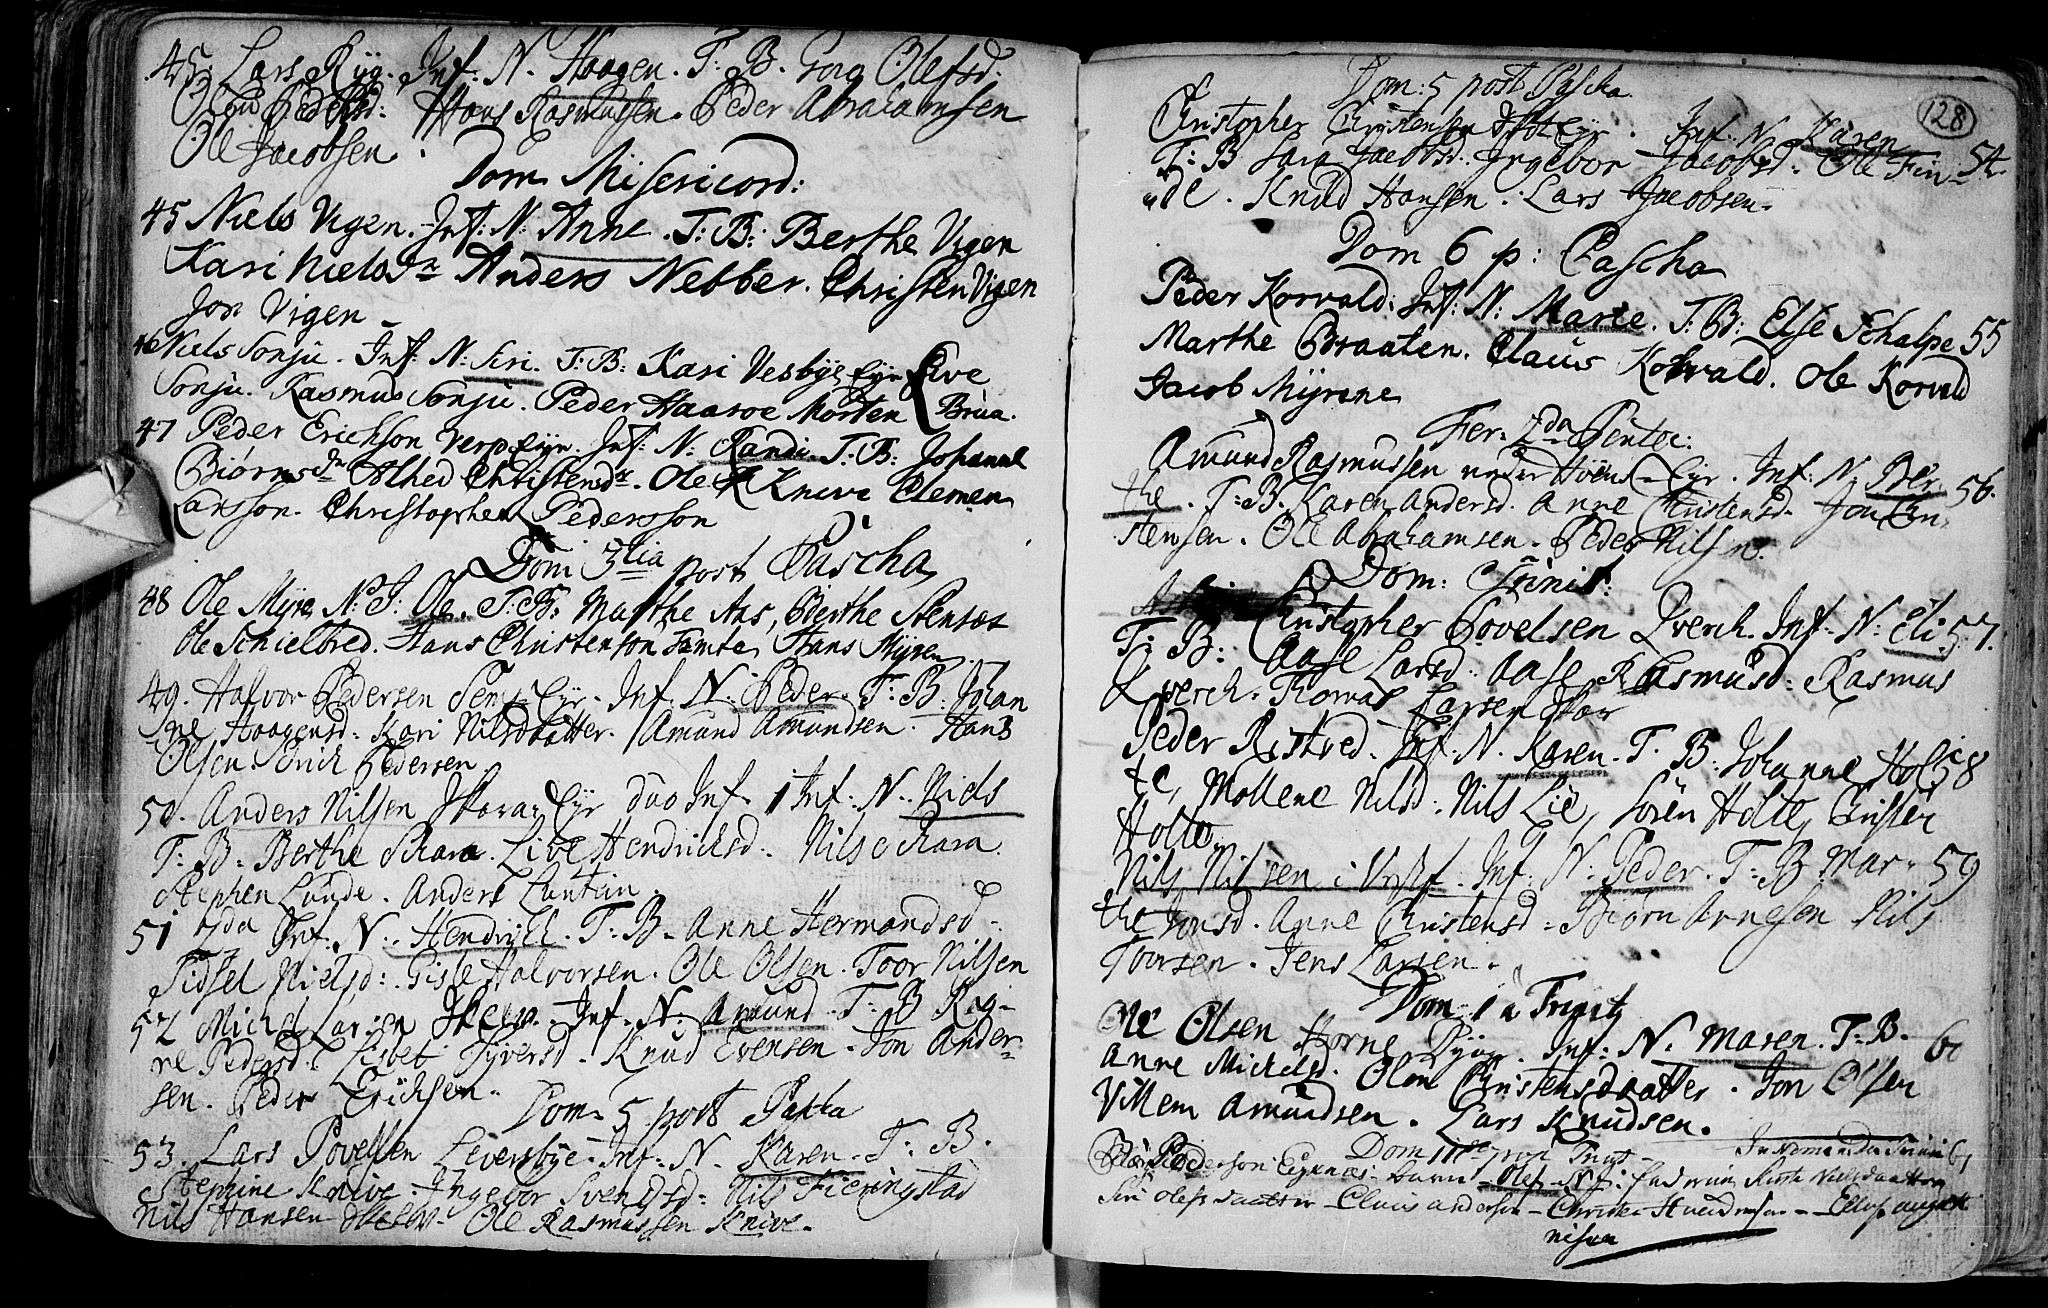 45. Lars Ryg. Inf: N. Haagen. T. B. Goro Olefsd:
Pedersd: Hans Rasmussen. Peder Abrahamsen
Ole Jacobsen.
Dom Misericord:
45 Niels Vigen. Inf: N: Anne. T: B: Berthe Vigen
Kari Nielsdr Anders Nebber. Christen Vigen
Jon Vigen
46 Niels Sonju. Inf: N: Siri. T: B: Kari Vesbye Eyr Live
Sonju. Rasmus Sonju. Peder Haasoe Morten Brua.
47 Peder Erichson Verp Eyr. Inf: N: Randi. T. B: Johanne
Biørnsdr Alhed Christensdr. Ole Knive Clemen
Larsson. Christopher Pedersson
Dom 3tia post Pascha
48 Ole Myre N: I: Ole. T: B: Marthe Aas, Berthe Stensæt
Ole Schielbred. Hans Christenson Tamta, Hans Myren
49. Halvor Pedersen Eyr. Inf. N. Peder. T: B. Johan
ne Haagensd: Kari Nilsdatter. Amund Amundsen. Hans
Olsen. Erich Pedersen
50. Anders Nilsen Skara Eyr duo Inf. 1 Inf: N: Niels
T: B: Berthe Skara. Live Hendricksd. Nils Skara.
Stephen Lunde. Anders
51 2da Inf: N: Hendrich. T: B. Anne Hermandsd.
Sidsel Nielsd: Gisle Halvorsen. Ole Olsen. Toor Nilsen
52 Michel Larsen Inf. N: Amund. T: B Reg-
ne Pedersd: Lisbet Syversd. Knud Evensen. Jon Ander-
sen. Peder Erichsen.
Dom. 5 post Pasca
53. Lars Povelsen Leversbye. Inf: N. Karen. T. B.
Stephine Knive. Ingebor Svendsd: Nils Fieringstad
Nils Hansen Ole Rasmussen Knive.
128
Dom: 5 post Pascha.
Christopher Christensen Eyr. Inf: N. Karen
T: B Sara Jacobsd. Ingebor Jacobsd. Ole Fin- 54.
de. Knud Hansen. Lars Jacobsen.
Dom 6 p: Pascha
Peder Korvald. Inf: N: Marte. T: B: Else Schalpe 55
Marthe Braaten. Claus Korvald. Ole Korvald
Jacob Myrene
Fer. 2da Pentec:
Amund Rasmussen under Eyr. Inf: N. Ber- 56.
the. T: B. Karen Andersd. Anne Christensd. Jon Chri-
stensen. Ole Abrahamsen. Peder Nilsen.
Dom: Trinit:
Christopher Povelsen Qverch. Inf: N: Eli 57.
T: B: Aase Larsd: Aase Rasmusd: Rasmus
Qverch. Thomas Larsen
Peder Ristved. Inf. N. Karen. T. B: Johanne Hol 58
te, Mollene Nilsd: Nils Lie, Sören Holte, Christen
Holte.
Nils Nilsen i Inf. N: Peder. T: B Mar- 59
the Jonsd. Anne Christensd. Biörn Arnesen Nils
Toorsen. Jens Larsen.
Dom 1 a Trinit
Ole Olsen Horne Inf: N. Maren. T: B. 60
Anne Michelsd. Olen Christensdaatter. Jon Olsen
Villem Amundsen. Lars Knudsen.
Dom post Trinit 61
Pederson Olef
Siri Olefsdaatter Claus Anderson